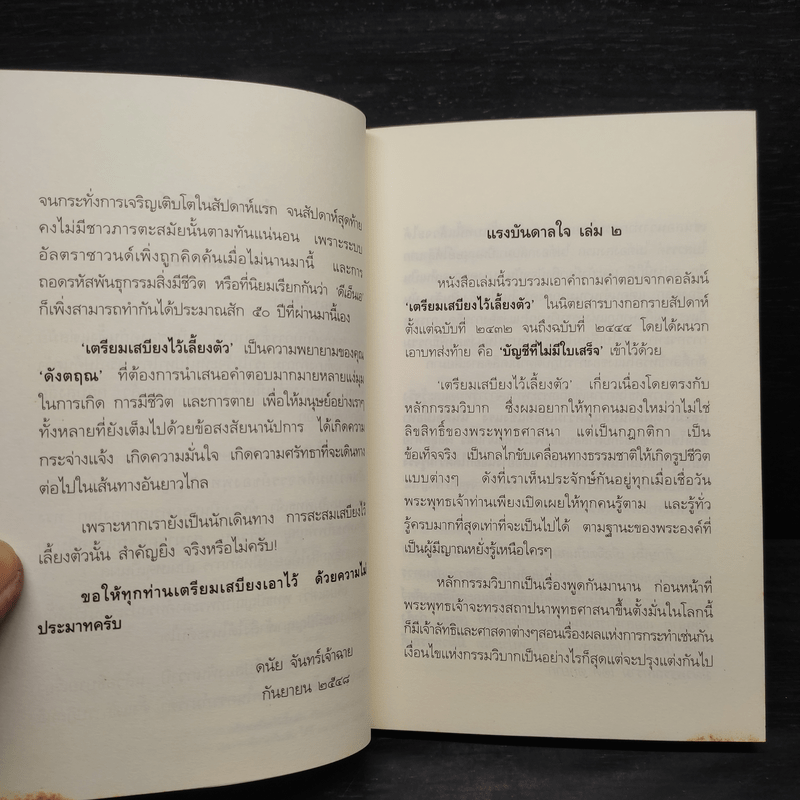 จนกระทั่งการเจริญเติบโตในสัปดาห์แรก จนสัปดาห์สุดท้าย
คงไม่มีชาวภารตะสมัยนั้นตามทันแน่นอน เพราะระบบ
อัลตราซาวนด์เพิ่งถูกคิดค้นเมื่อไม่นานมานี้ และการ
ถอดรหัสพันธุกรรมสิ่งมีชีวิต หรือที่นิยมเรียกกันว่า ‘ดีเอ็นเอ’
ก็เพิ่งสามารถทำกันได้ประมาณสัก ๕๐ ปีที่ผ่านมานี้เอง
‘เตรียมเสบียงไว้เลี้ยงตัว’ เป็นความพยายามของคุณ
‘ดังตฤณ’ ที่ต้องการนำเสนอคำตอบมากมายหลายแง่มุม
ในการเกิด การมีชีวิต และการตาย เพื่อให้มนุษย์อย่างเราๆ
ทั้งหลายที่ยังเต็มไปด้วยข้อสงสัยนานัปการ ได้เกิดความ
กระจ่างแจ้ง เกิดความมั่นใจ เกิดความศรัทธาที่จะเดินทาง
ต่อไปในเส้นทางอันยาวไกล
เพราะหากเรายังเป็นนักเดินทาง การสะสมเสบียงไว้
เลี้ยงตัวนั้น สำคัญยิ่ง จริงหรือไม่ครับ!
ขอให้ทุกท่านเตรียมเสบียงเอาไว้ ด้วยความไม่
ประมาทครับ
ดนัย จันทร์เจ้าฉาย
กันยายน ๒๕๔๘
แรงบันดาลใจ เล่ม ๒
หนังสือเล่มนี้รวบรวมเอาคำถามคำตอบจากคอลัมน์
‘เตรียมเสบียงไว้เลี้ยงตัว’ ในนิตยสารบางกอกรายสัปดาห์
ตั้งแต่ฉบับที่ ๒๔๓๒ จนถึงฉบับที่ ๒๔๔๔ โดยได้ผนวก
เอาบทส่งท้าย คือ ‘บัญชีที่ไม่มีใบเสร็จ’ เข้าไว้ด้วย
‘เตรียมเสบียงไว้เลี้ยงตัว’ เกี่ยวเนื่องโดยตรงกับ
หลักกรรมวิบาก ซึ่งผมอยากให้ทุกคนมองใหม่ว่าไม่ใช่
ลิขสิทธิ์ของพระพุทธศาสนา แต่เป็นกฎกติกา เป็น
ข้อเท็จจริง เป็นกลไกขับเคลื่อนทางธรรมชาติให้เกิดรูปชีวิต
แบบต่างๆ ดังที่เราเห็นประจักษ์กันอยู่ทุกเมื่อเชื่อวัน
พระพุทธเจ้าท่านเพียงเปิดเผยให้ทุกคนรู้ตาม และรู้ทั่ว
รู้ครบมากที่สุดเท่าที่จะเป็นไปได้ ตามฐานะของพระองค์ที่
เป็นผู้มีญาณหยั่งรู้เหนือใครๆ
หลักกรรมวิบากเป็นเรื่องพูดกันมานาน ก่อนหน้าที่
พระพุทธเจ้าจะทรงสถาปนาพุทธศาสนาขึ้นตั้งมั่นในโลกนี้
ก็มีเจ้าลัทธิและศาสดาต่างๆสอนเรื่องผลแห่งการกระทำเช่นกัน
เงื่อนไขแห่งกรรมวิบากเป็นอย่างไรก็สุดแต่จะปรุงแต่งกันไป